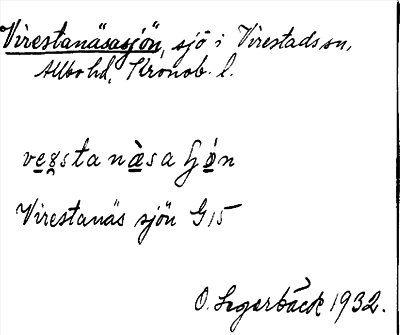 Virestanäsasjön, sjö i Virestads sn,
Allbo hd, Kronob. l.
vegstanàsa
Virestanäs sjön G15
O. Segerbäck 1932.